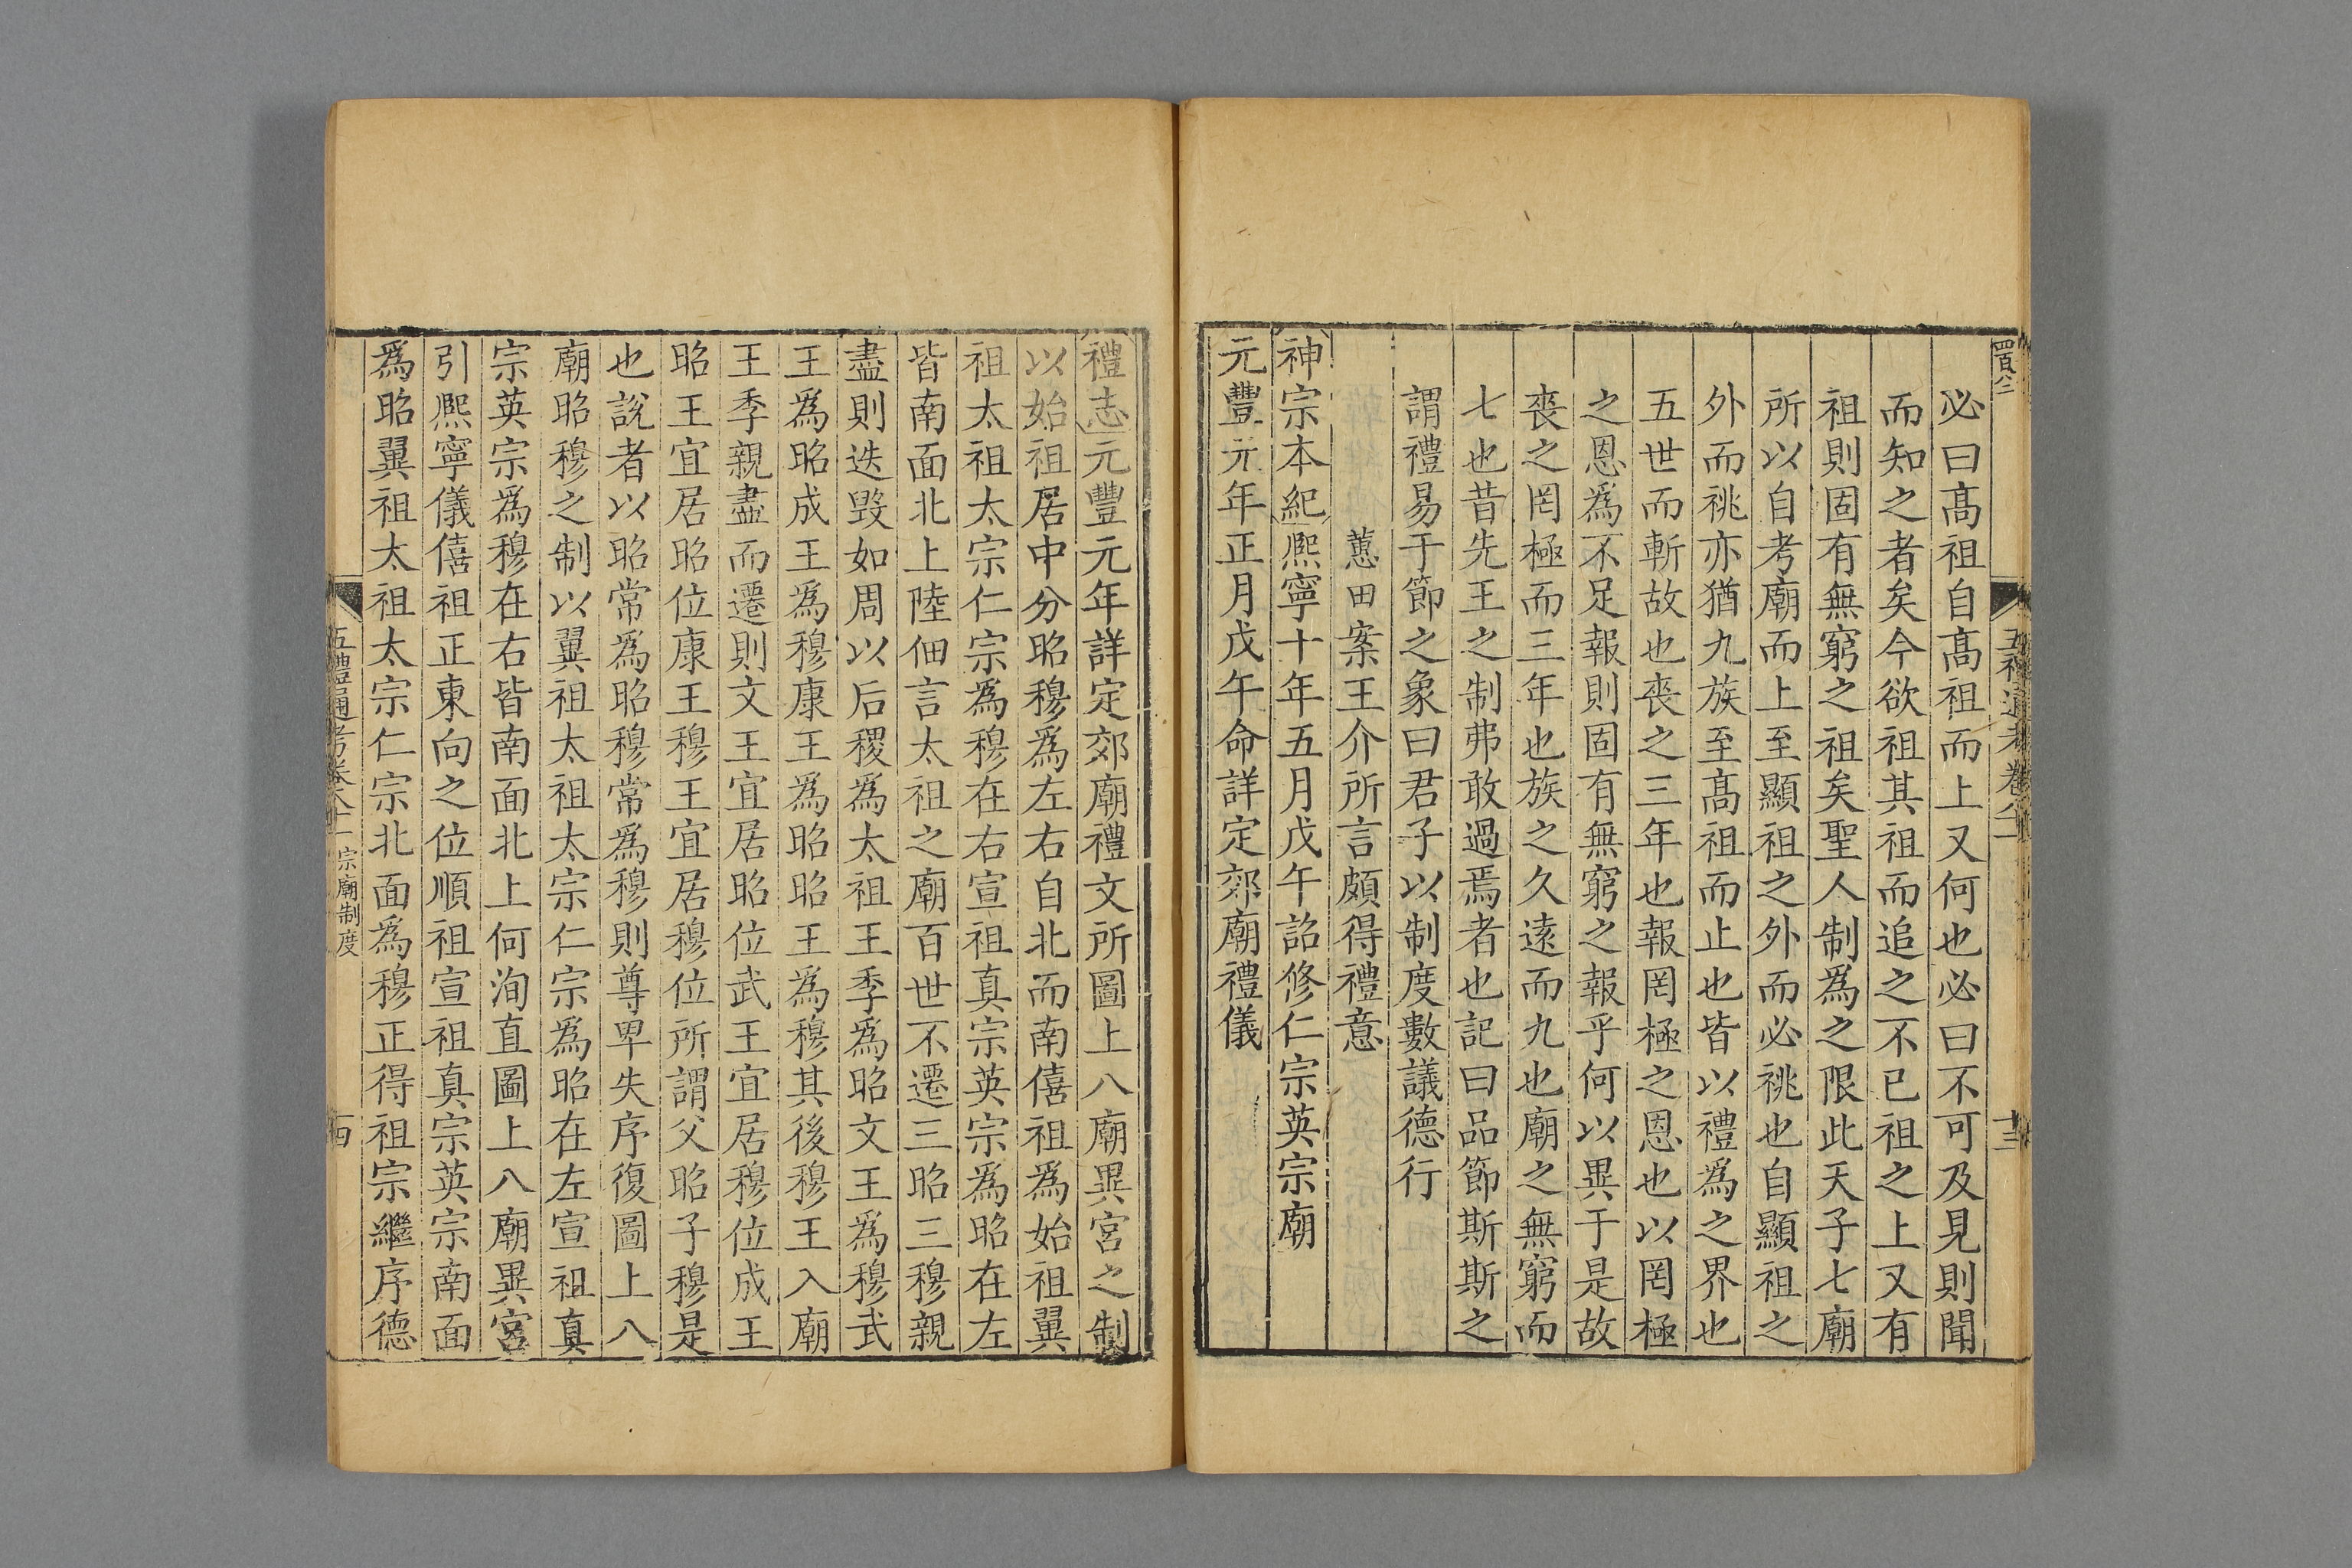 必曰髙祖自髙祖而上又何也必曰不可及見則聞
而知之者矣今欲祖其祖而追之不已祖之上又有
祖則固有無窮之祖矣聖人制爲之限此天子七廟
所以自考廟而上至顯祖之外而必祧也自顯祖之
外而祧亦猶九族至髙祖而止也皆以禮爲之界也
五世而斬故也喪之三年也報罔極之恩也以罔極
之恩爲不足報則固有無窮之報乎何以異于是故
喪之罔極而三年也族之久遠而九也廟之無窮而
七也昔先王之制弗敢過焉者也記曰品節斯斯之
謂禮易于節之象曰君子以制度數議德行
蕙田案王介所言頗得禮意
神宗本紀熙寧十年五月戊午詔修仁宗英宗廟
元豐元年正月戊午命詳定郊廟禮儀
禮志元豐元年詳定郊廟禮文所圖上八廟異宮之制
以始祖居中分昭穆爲左右自北而南僖祖爲始祖翼
祖太祖太宗仁宗爲穆在右宣祖真宗英宗爲昭在左
皆南面北上陸佃言太祖之廟百世不遷三昭三穆親
盡則迭毀如周以后稷爲太祖王季爲昭文王爲穆武
王爲昭成王爲穆康王爲昭昭王爲穆其後穆王入廟
王季親盡而遷則文王宜居昭位武王宜居穆位成王
昭王宜居昭位康王穆王宜居穆位所謂父昭子穆是
也說者以昭常爲昭穆常爲穆則尊卑失序復圖上八
廟昭穆之制以翼祖太祖太宗仁宗為昭在左宣祖真
宗英宗爲穆在右皆南面北上何洵直圖上八廟異宮
引熙寧儀僖祖正東向之位順祖宣祖真宗英宗南面
爲昭翼祖太祖太宗仁宗北面爲穆正得祖宗繼序德
五禮通考卷八十二 宗廟制度